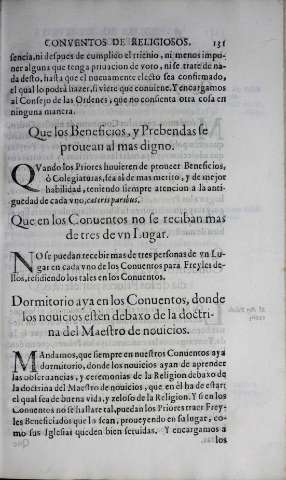 CONVENTOS DE RELIGIOSOS. 131
sencia, ni despues de cumplido el trienio, ni menos impo-
ner alguna que tenga priuacion de voto, ni se trate de na-
da desto, hasta que el nueuamente electo sea confirmado,
el qual lo podrà hazer, si viere que conuiene. Y encargamos
al Consejo de las Ordenes, que no consienta otra cosa en
ninguna manera.
Que los Beneficios, y Prebendas se
prouean al mas digno.
QVando los Priores huuieren de proueer Beneficios,
ò Colegiaturas, sea al de mas merito, y de mejor
habilidad, teniendo siempre atencion a la anti-
guedad de cada vno, cæteris paribus.
Que en los Conuentos no se reciban mas
de tres de vn Lugar.
NO se puedan recebir mas de tres personas de vn Lu-
gar en cada vno de los Conuentos para Freyles de-
llos, residiendo los tales en los Conuentos.
Dormitorio aya en los Conuentos, donde
los nouicios estèn debaxo de la doctri-
na del Maestro de nouicios.
MAndamos, que siempre en nuestros Conuentos aya
dormitorio, donde los nouicios ayan de aprender
las obseruancias, y ceremonias de la Religion debaxo de
la doctrina del Maestro de nouicios, que en èl ha de estar;
el qual sea de buena vida, y zeloso de la Religion. Y si en los
Conuentos no se hallare tal, puedan los Priores traer Frey-
les Beneficiados que lo sean, proueyendo en su lugar, co-
mo sus Iglesias queden bien seruidas. Y encargamos a
los